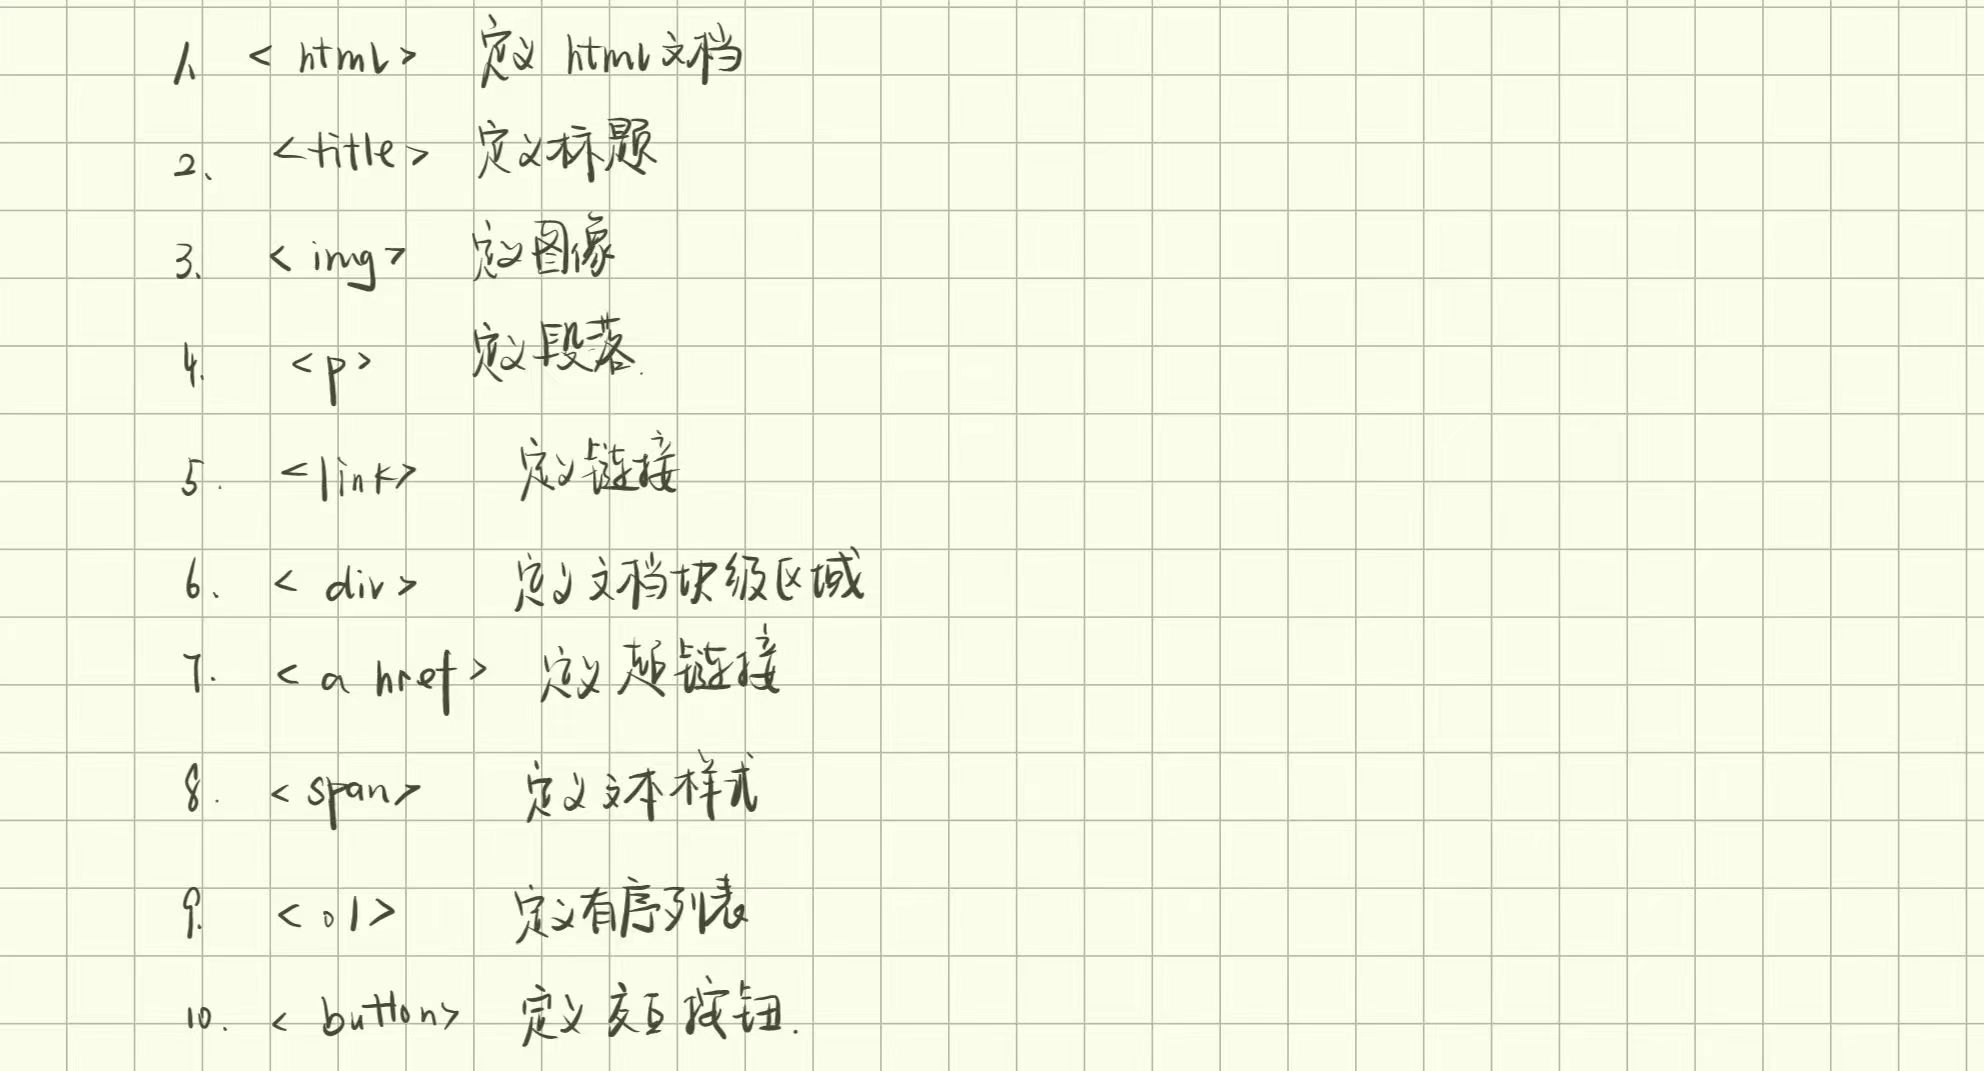 1. <html> 定义 html文档
2、 <title> 定义标题
3、 <img> 定义图像
4. <p> 定义段落.
5. <link> 定义链接
6、 <div> 定义文档块级区域
7. <a href> 定义超链接
8. <span> 定义文本样式
9. <ol> 定义有序列表
10. <button> 定义交互按钮.